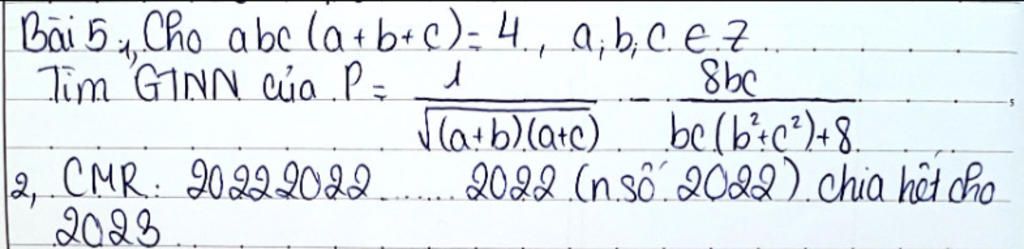 Bài 5, 1, Cho abc (a+b+c) = 4, a; b; c ∈ Z
Tìm GTNN của P = 1/√(a+b)(a+c) - 8bc/bc(b²+c²)+8
2, CMR: 20222022.......2022 (n số 2022) chia hết cho
2023